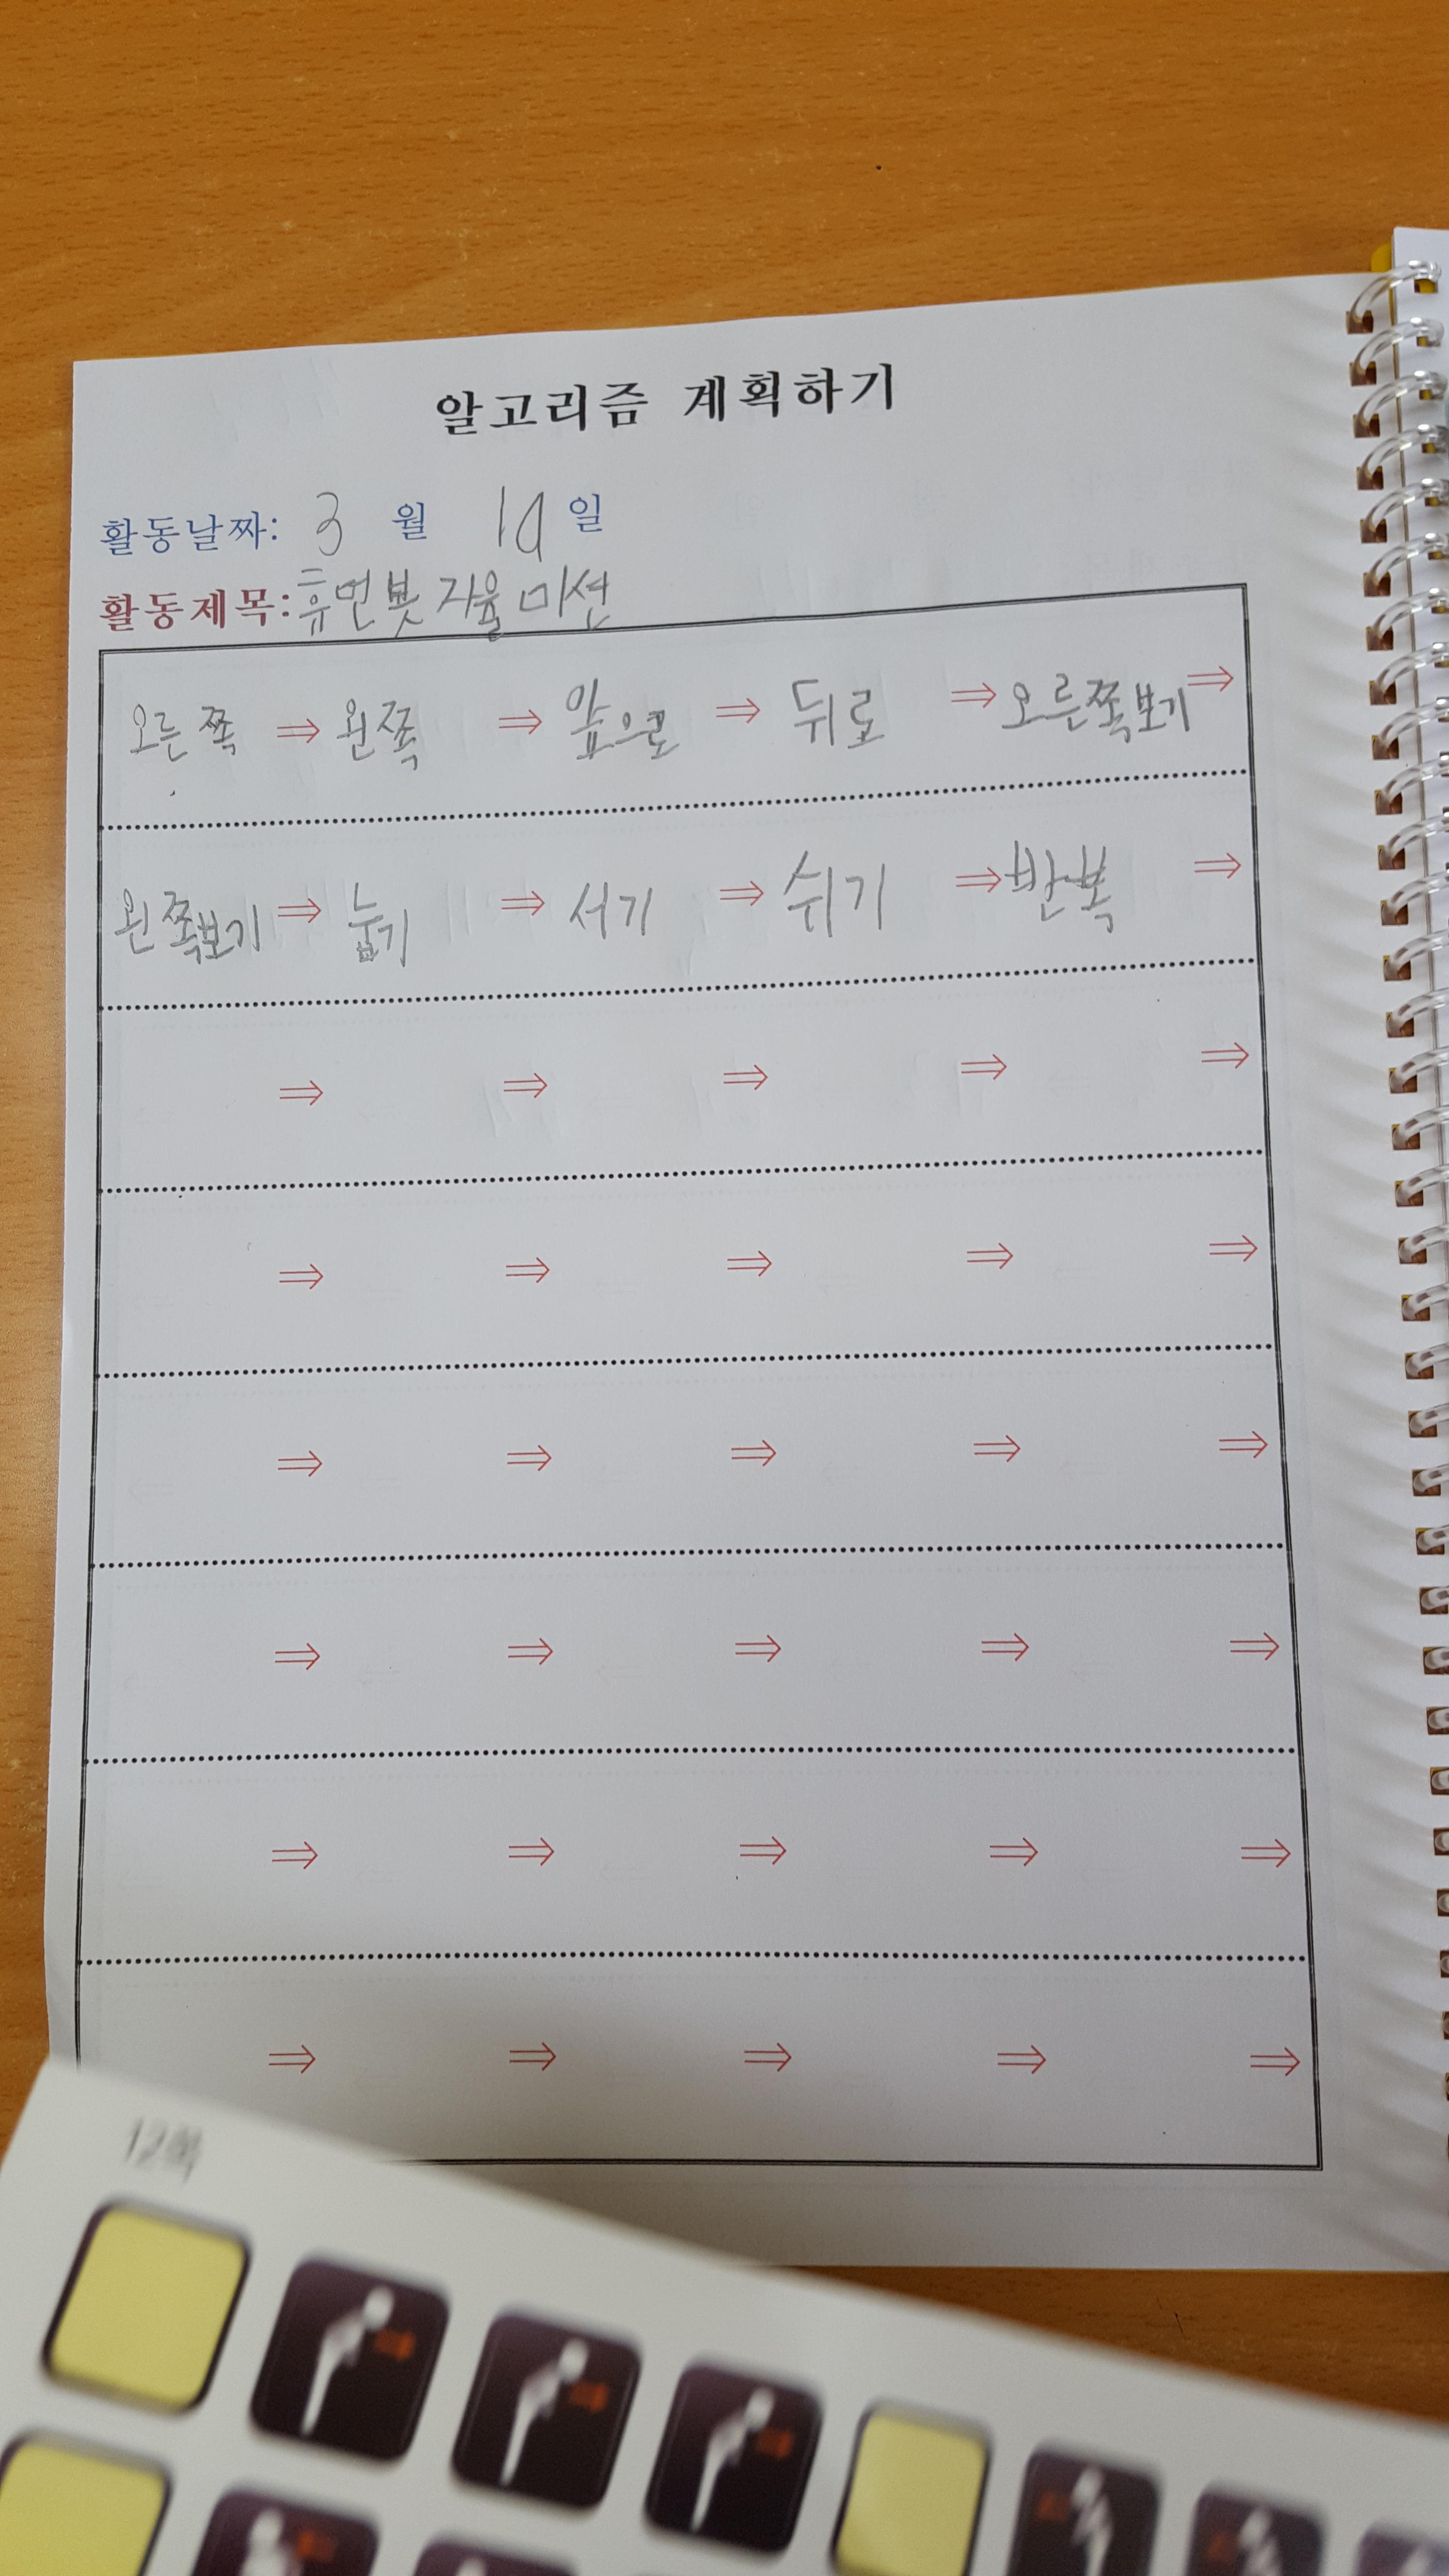 알고리즘 계획하기
활동날짜: 3 월 19 일
활동제목: 휴먼봇 자율 미션
오른쪽 ⇒ 왼쪽 ⇒ 앞으로 ⇒ 뒤로 ⇒ 오른쪽보기 ⇒
왼쪽보기 ⇒ 눕기 ⇒ 서기 ⇒ 쉬기 ⇒ 반복 ⇒
⇒ ⇒ ⇒ ⇒ ⇒
⇒ ⇒ ⇒ ⇒ ⇒
⇒ ⇒ ⇒ ⇒ ⇒
⇒ ⇒ ⇒ ⇒ ⇒
⇒ ⇒ ⇒ ⇒ ⇒
⇒ ⇒ ⇒ ⇒ ⇒